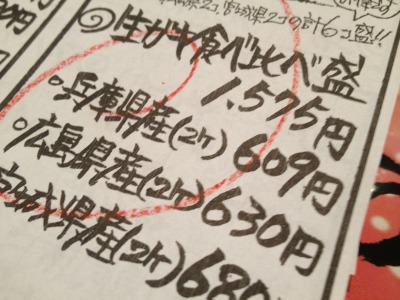 県2コ、宮城県2コの計6コ盛!!
生がき食べ比べ盛
1.575円
兵庫県産(2ケ) 609円
広島県産(2ケ) 630円
宮城県産(2ケ) 680